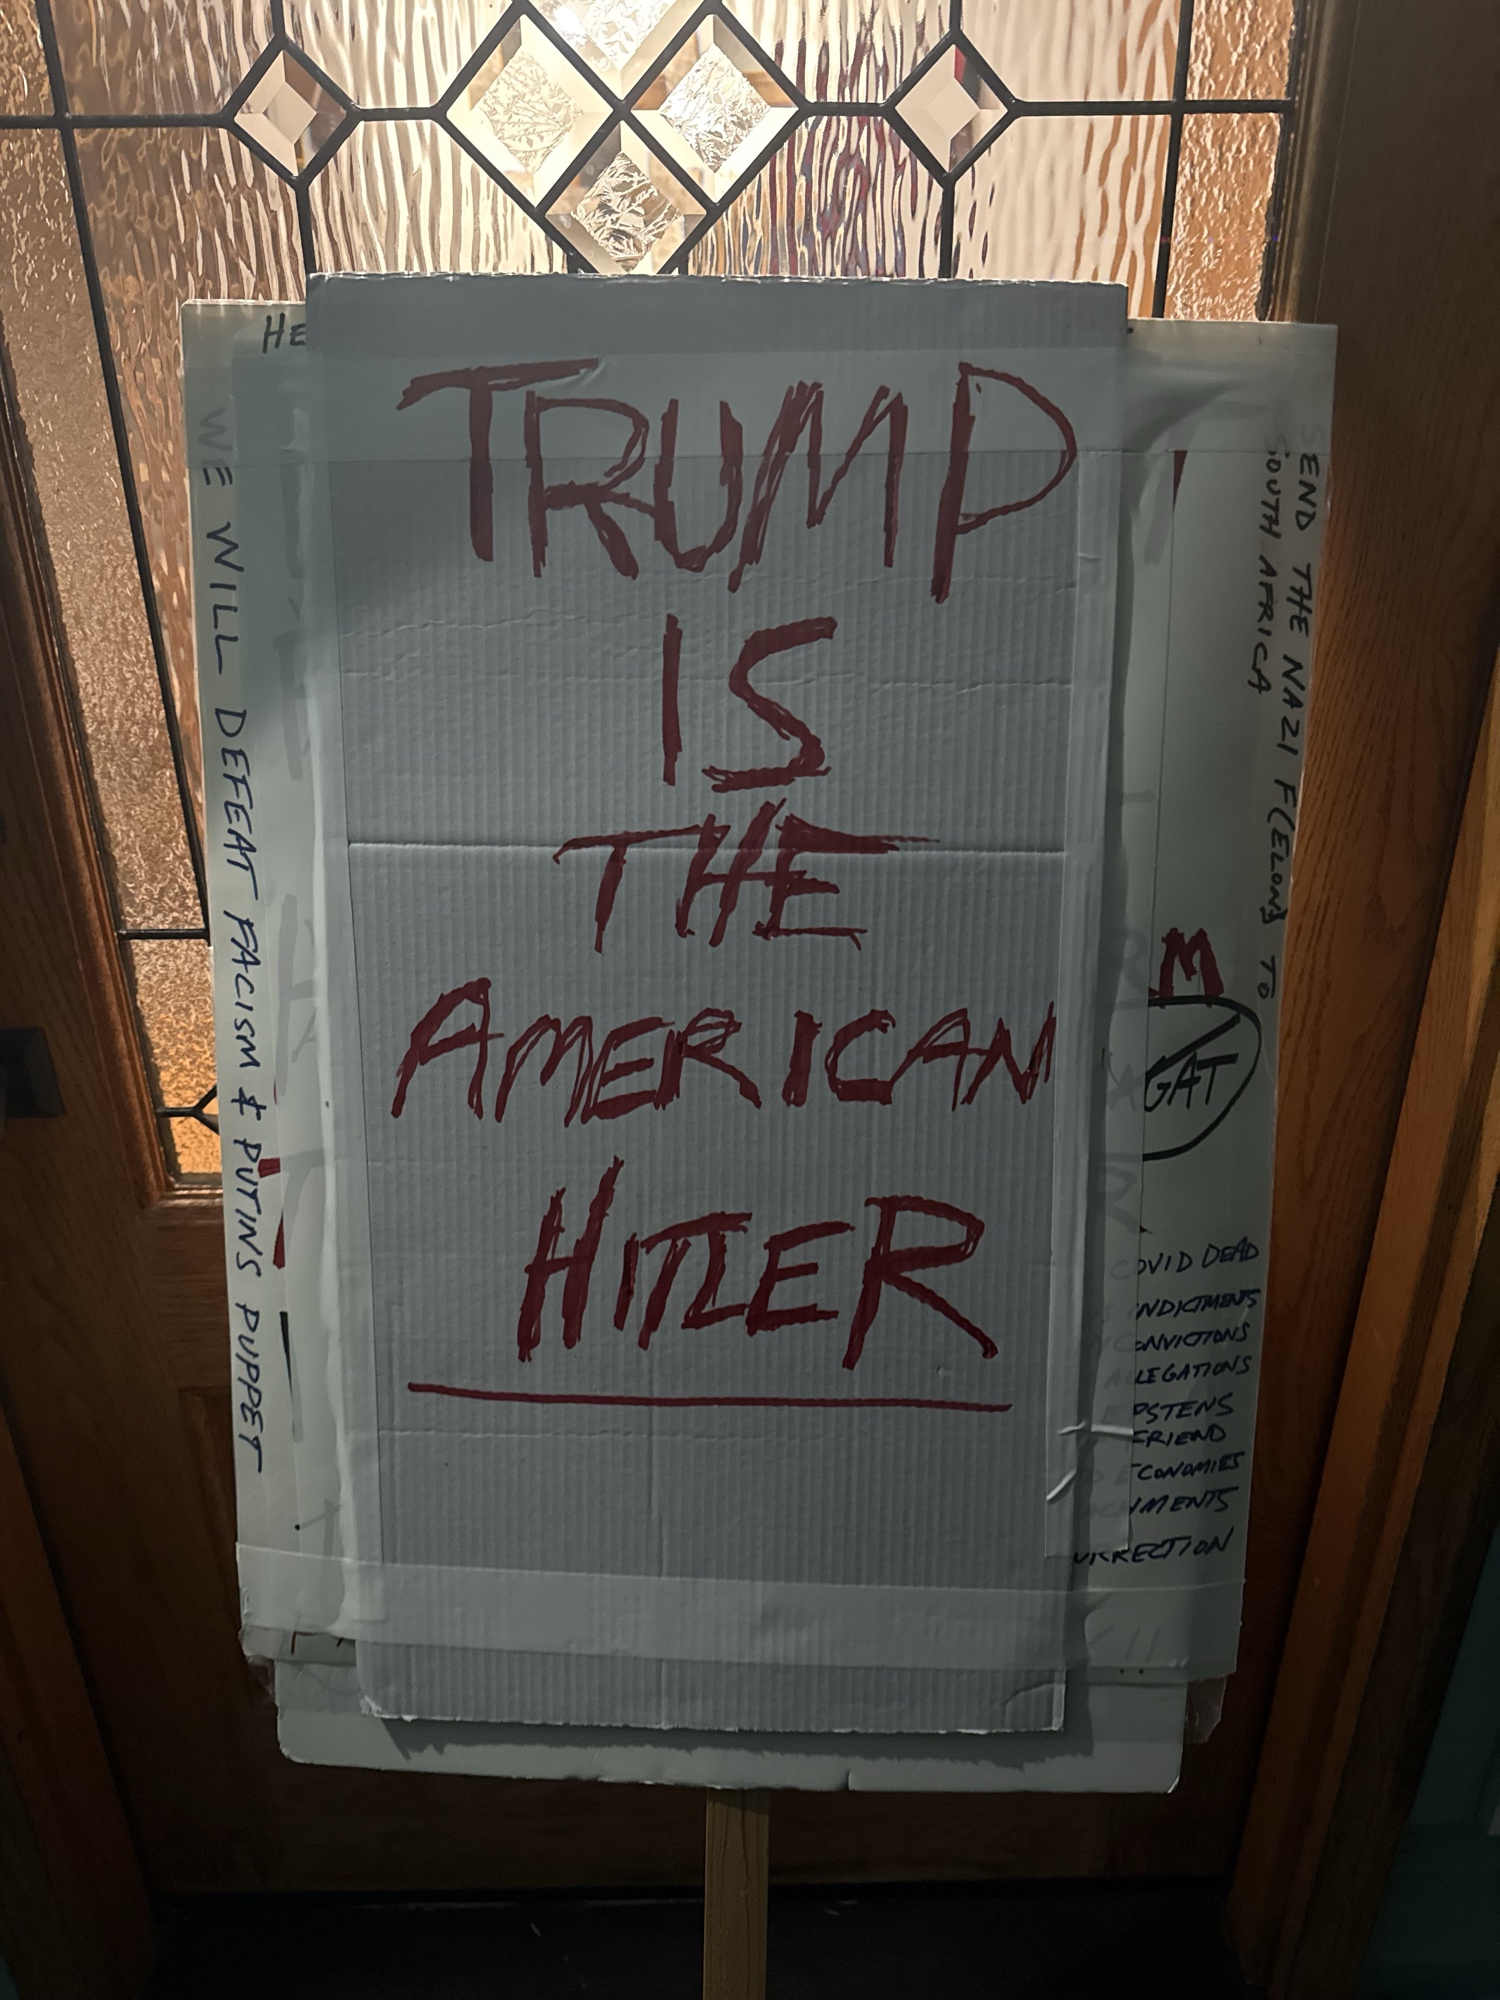 HE
TRUMP
IS
THE
AMERICAN
HITLER
WE WILL DEFEAT FACISM & PUTINS PUPPET
SEND THE NAZI F(ELON) TO
SOUTH AFRICA
M
GAT
COVID DEAD
INDICTMENTS
CONVICTIONS
ALLEGATIONS
EPSTENS
FRIEND
ECONOMIES
CHMENTS
URRECTION